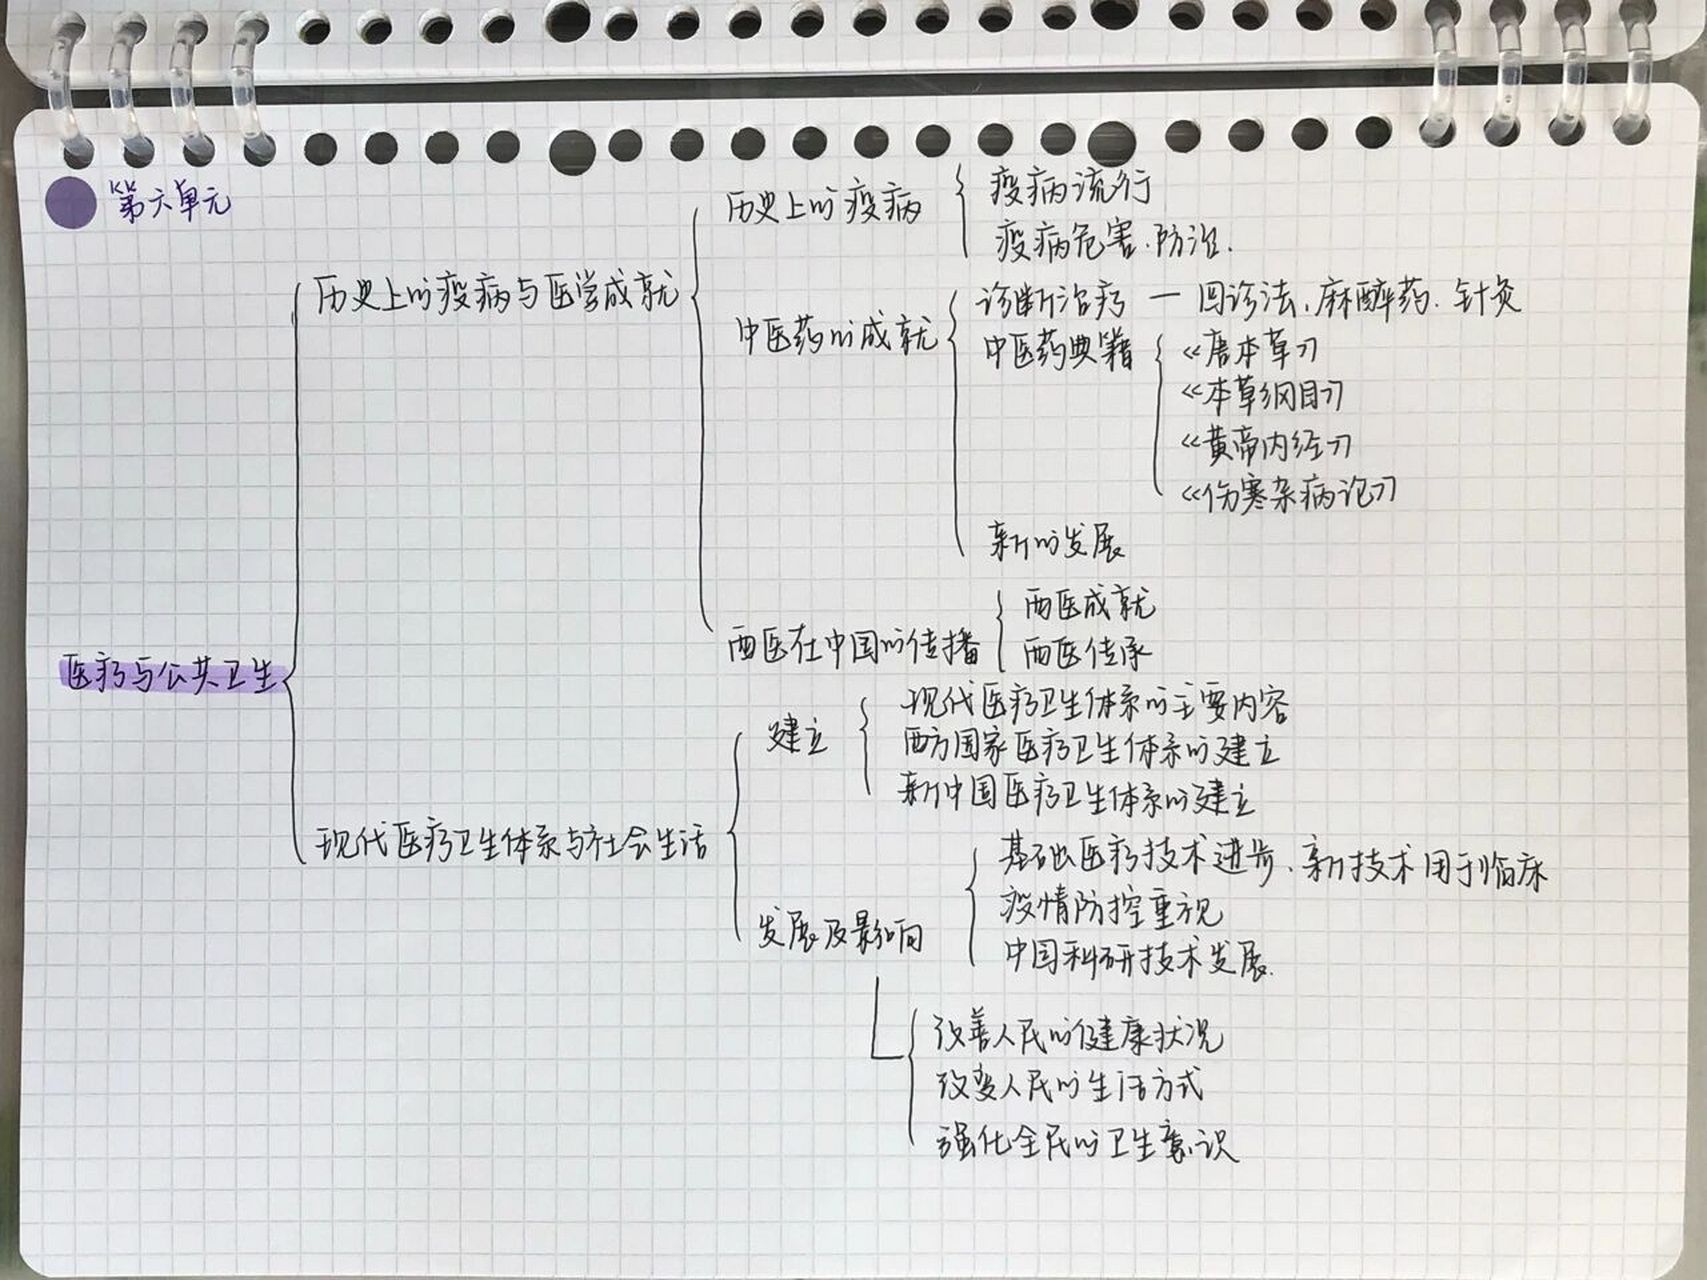 第六单元
历史上的疫病
疫病流行
疫病危害、防治.
历史上的疫病与医学成就
中医药的成就
诊断治疗 — 四诊法、麻醉药、针灸
中医药典籍
《唐本草》
《本草纲目》
《黄帝内经》
《伤寒杂病论》
新的发展
西医在中国的传播
西医成就
西医传承
医疗与公共卫生
建立
现代医疗卫生体系的主要内容
西方国家医疗卫生体系的建立
新中国医疗卫生体系的建立
现代医疗卫生体系与社会生活
发展及影响
基础医疗技术进步、新技术用于临床
疫情防控重视
中国科研技术发展.
改善人民的健康状况
改变人民的生活方式
强化全民的卫生意识